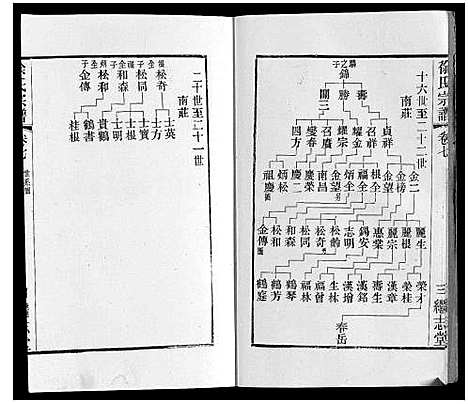 徐氏宗譜
卷七
三
繼志堂
十六世至二十二世
南莊
錦
壽
勝
關二
貞祥
召祥
耀金
耀宗
召廣
燮春
四方
金二
金榜
金望
根全
福全
炳全
金望
南昌
慶榮
慶
炳松
祖慶
麗生
麗根
麗宗
惠棠
錫安
志明
松奇
松同
和森
松和
金傳
榮才
榮桂
漢章
壽生
漢銘
漢增
生林
福曾
福林
鶴琴
鶴芳
鶴庭
春岳
二十世至二十一世
南莊
松奇
松同
和森
松和
金傳
士英
士方
士寶
士根
士明
貴鶴
鶴書
桂根
卷七